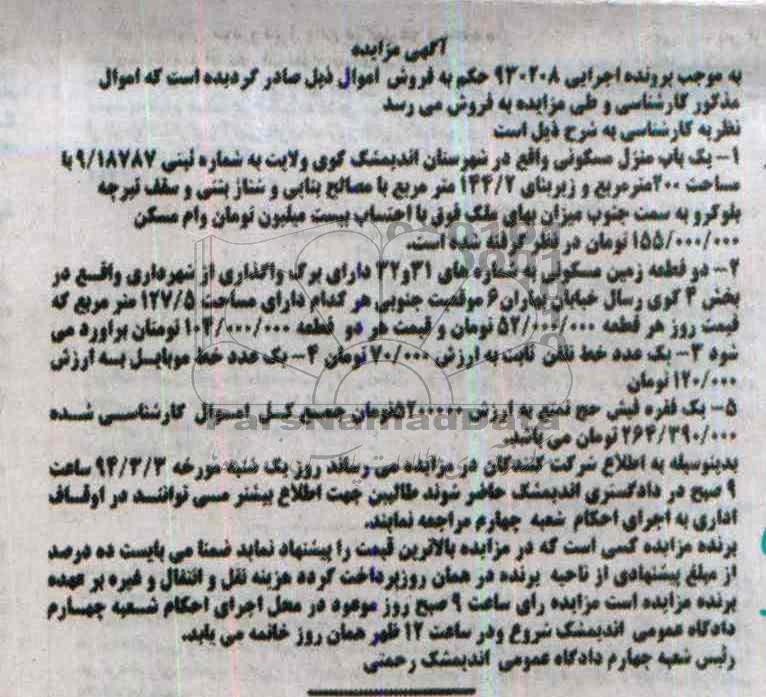 آگهی مزایده
به موجب پرونده اجرایی ۹۳۰۲۰۸ حکم به فروش اموال ذیل صادر گردیده است که اموال
مذکور کارشناسی و طی مزایده به فروش می رسد
نظریه کارشناسی به شرح ذیل است
۱- یک باب منزل مسکونی واقع در شهرستان اندیمشک کوی ولایت به شماره ثبتی ۹/۱۸۷۸۷ با
مساحت ۲۰۰مترمربع و زیربنای ۱۴۴/۲ متر مربع با مصالح بنایی و شناژ بتنی و سقف تیرچه
بلوکرو به سمت جنوب میزان بهای ملک فوق با احتساب بیست میلیون تومان وام مسکن
۱۵۵/۰۰۰/۰۰۰ تومان در نظر گرفته شده است.
۲- دو قطعه زمین مسکونی به شماره های ۳۱و۳۲ دارای برگ واگذاری از شهرداری واقع در
بخش ۴ کوی رسال خیابان بهاران ۶ موقعیت جنوبی هر کدام دارای مساحت ۱۲۷/۵ متر مربع که
قیمت روز هر قطعه ۵۲/۰۰۰/۰۰۰ تومان و قیمت هر دو قطعه ۱۰۴/۰۰۰/۰۰۰ تومنان براورد می
شود ۳- یک عدد خط تلفن ثابت به ارزش ۷۰/۰۰۰ تومان ۴- یک عدد خط موبایل به ارزش
۱۲۰/۰۰۰ تومان
۵- یک فقره فیش حج تمتع به ارزش ۵۲۰۰۰۰۰تومان جمع کل اموال کارشناسی شده
۲۶۴/۳۹۰/۰۰۰ تومان می باشد.
بدینوسیله به اطلاع شرکت کنندگان در مزایده می رساند روز یک شنبه مورخه ۹۴/۳/۳ ساعت
۹ صبح در دادگستری اندیمشک حاضر شوند طالبین جهت اطلاع بیشتر می توانند در اوقاف
اداری به اجرای احکام شعبه چهارم مراجعه نمایند.
برنده مزایده کسی است که در مزایده بالاترین قیمت را پیشنهاد نماید ضمنا می بایست ده درصد
از مبلغ پیشنهادی از ناحیه برنده در همان روزپرداخت گردد هزینه نقل و انتقال و غیره بر عهده
برنده مزایده است مزایده رای ساعت ۹ صبح روز موعود در محل اجرای احکام شعبه چهارم
دادگاه عمومی اندیمشک شروع ودر ساعت ۱۲ ظهر همان روز خاتمه می یابد.
رئیس شعبه چهارم دادگاه عمومی اندیمشک رحمتی
ParsNamadData